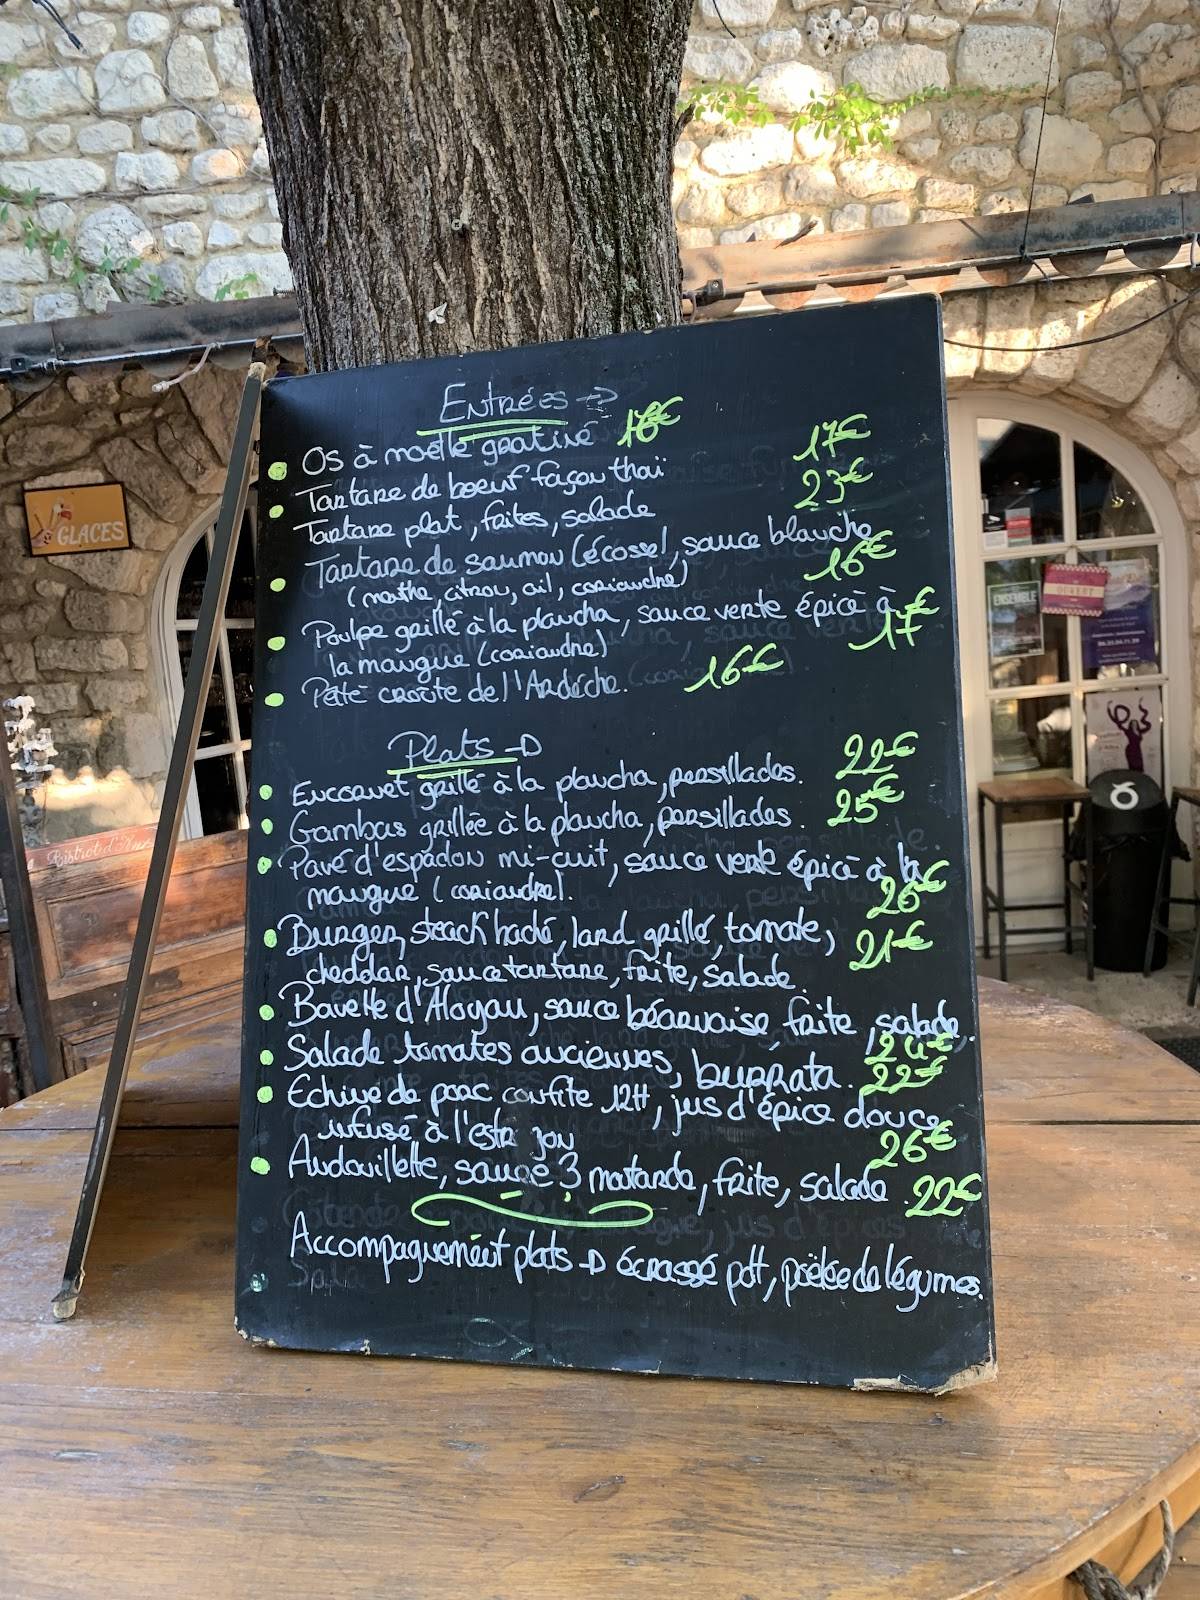 Entrées →
Os à moelle gratiné 16€
Tartare de boeuf façon thaï 17€
Tartare plat, frites, salade 23€
Tartare de saumon (écosse), sauce blanche
(menthe, citron, ail, coriandre) 16€
Poulpe grillé à la plancha, sauce verte épicé à
la mangue (coriandre) 17€
Pâté croûte de l'Ardèche. 16€
Plats →
Encornet grillé à la plancha, persillades. 22€
Gambas grillée à la plancha, persillades. 25€
Pavé d'espadon mi-cuit, sauce verte épicé à la
mangue (coriandre). 26€
Burger, steack haché, lard grillé, tomate,
cheddar, sauce tartare, frite, salade. 21€
Bavette d'Aloyau, sauce béarnaise, frite, salade.
24€
Salade tomates anciennes, burrata. 22€
Echine de porc confite 12H, jus d'épice douce
infusé à l'estragon 26€
Andouillette, sauce 3 moutarde, frite, salade. 22€
Accompagnement plats → écrassé pdt, poêlée de légumes.
GLACES
Bistrot d'
ENSEMBLE